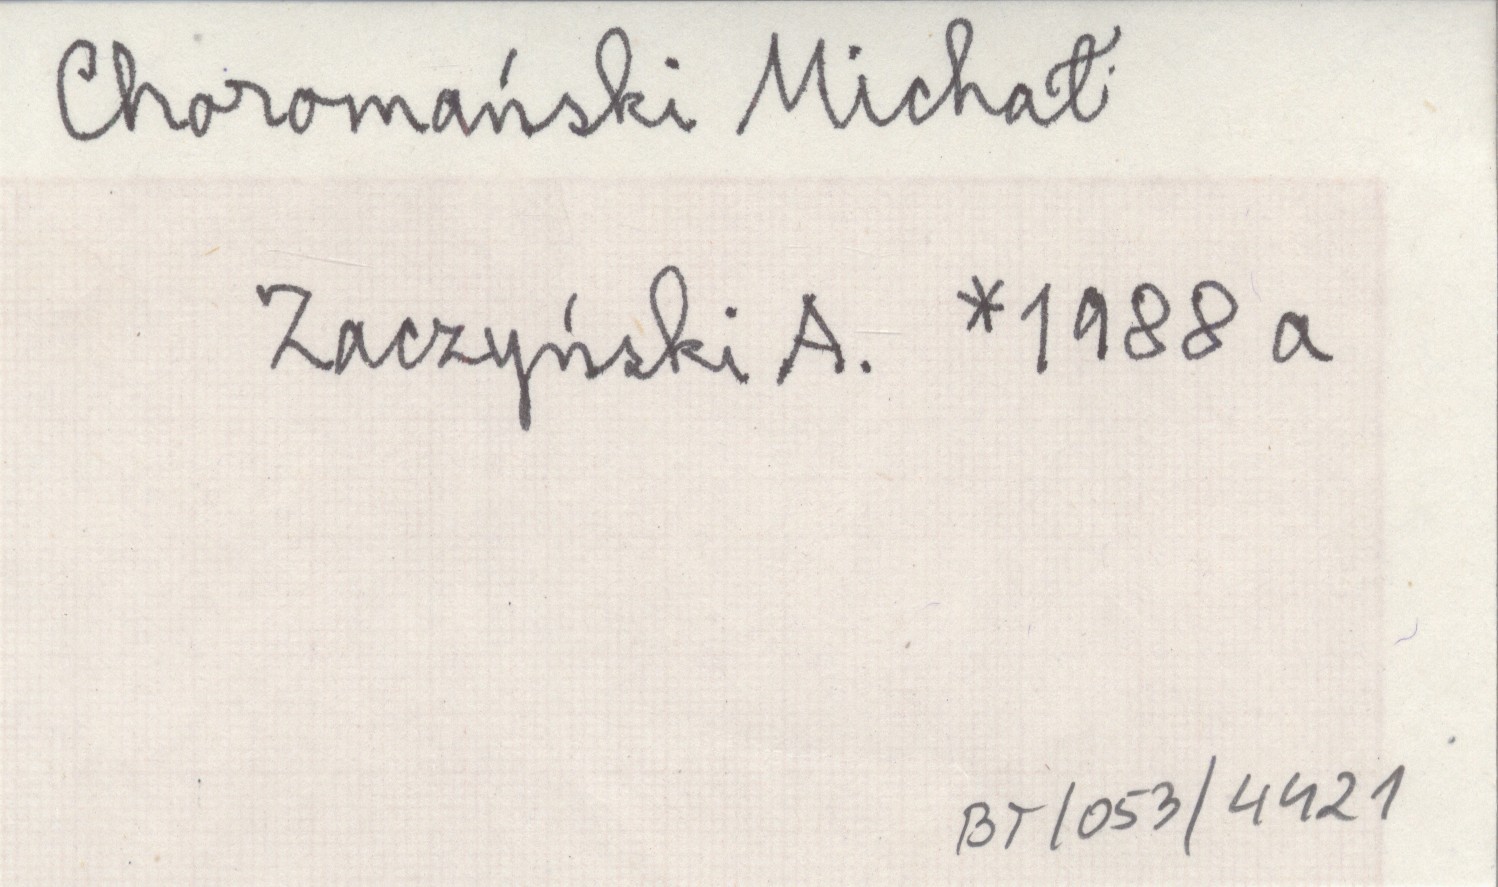 Choromański Michał
Zaczyński A. *1988 a
BT/053/4421